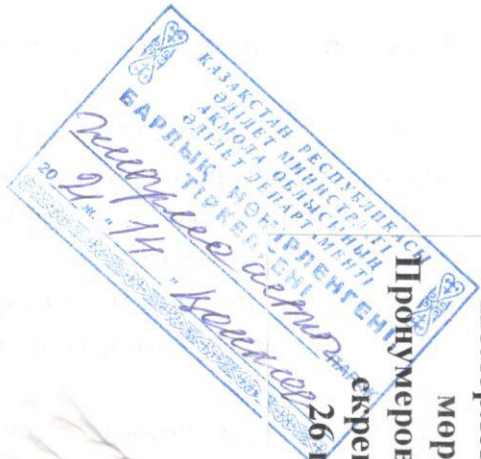 ҚАЗАҚСТАН РЕСПУБЛИКАСЫ
ӘДІЛЕТ МИНИСТРЛІГІ
АҚМОЛА ОБЛЫСЫНЫҢ
ӘДІЛЕТ ДЕПАРТАМЕНТІ
БАРЛЫҚ НӨМІРЛЕНГЕНІ
ТІРКЕЛГЕНІ
жиырма алты ПАРАҚ
20 21 ж. "14"
мөр
Пронумеров
скреп
26